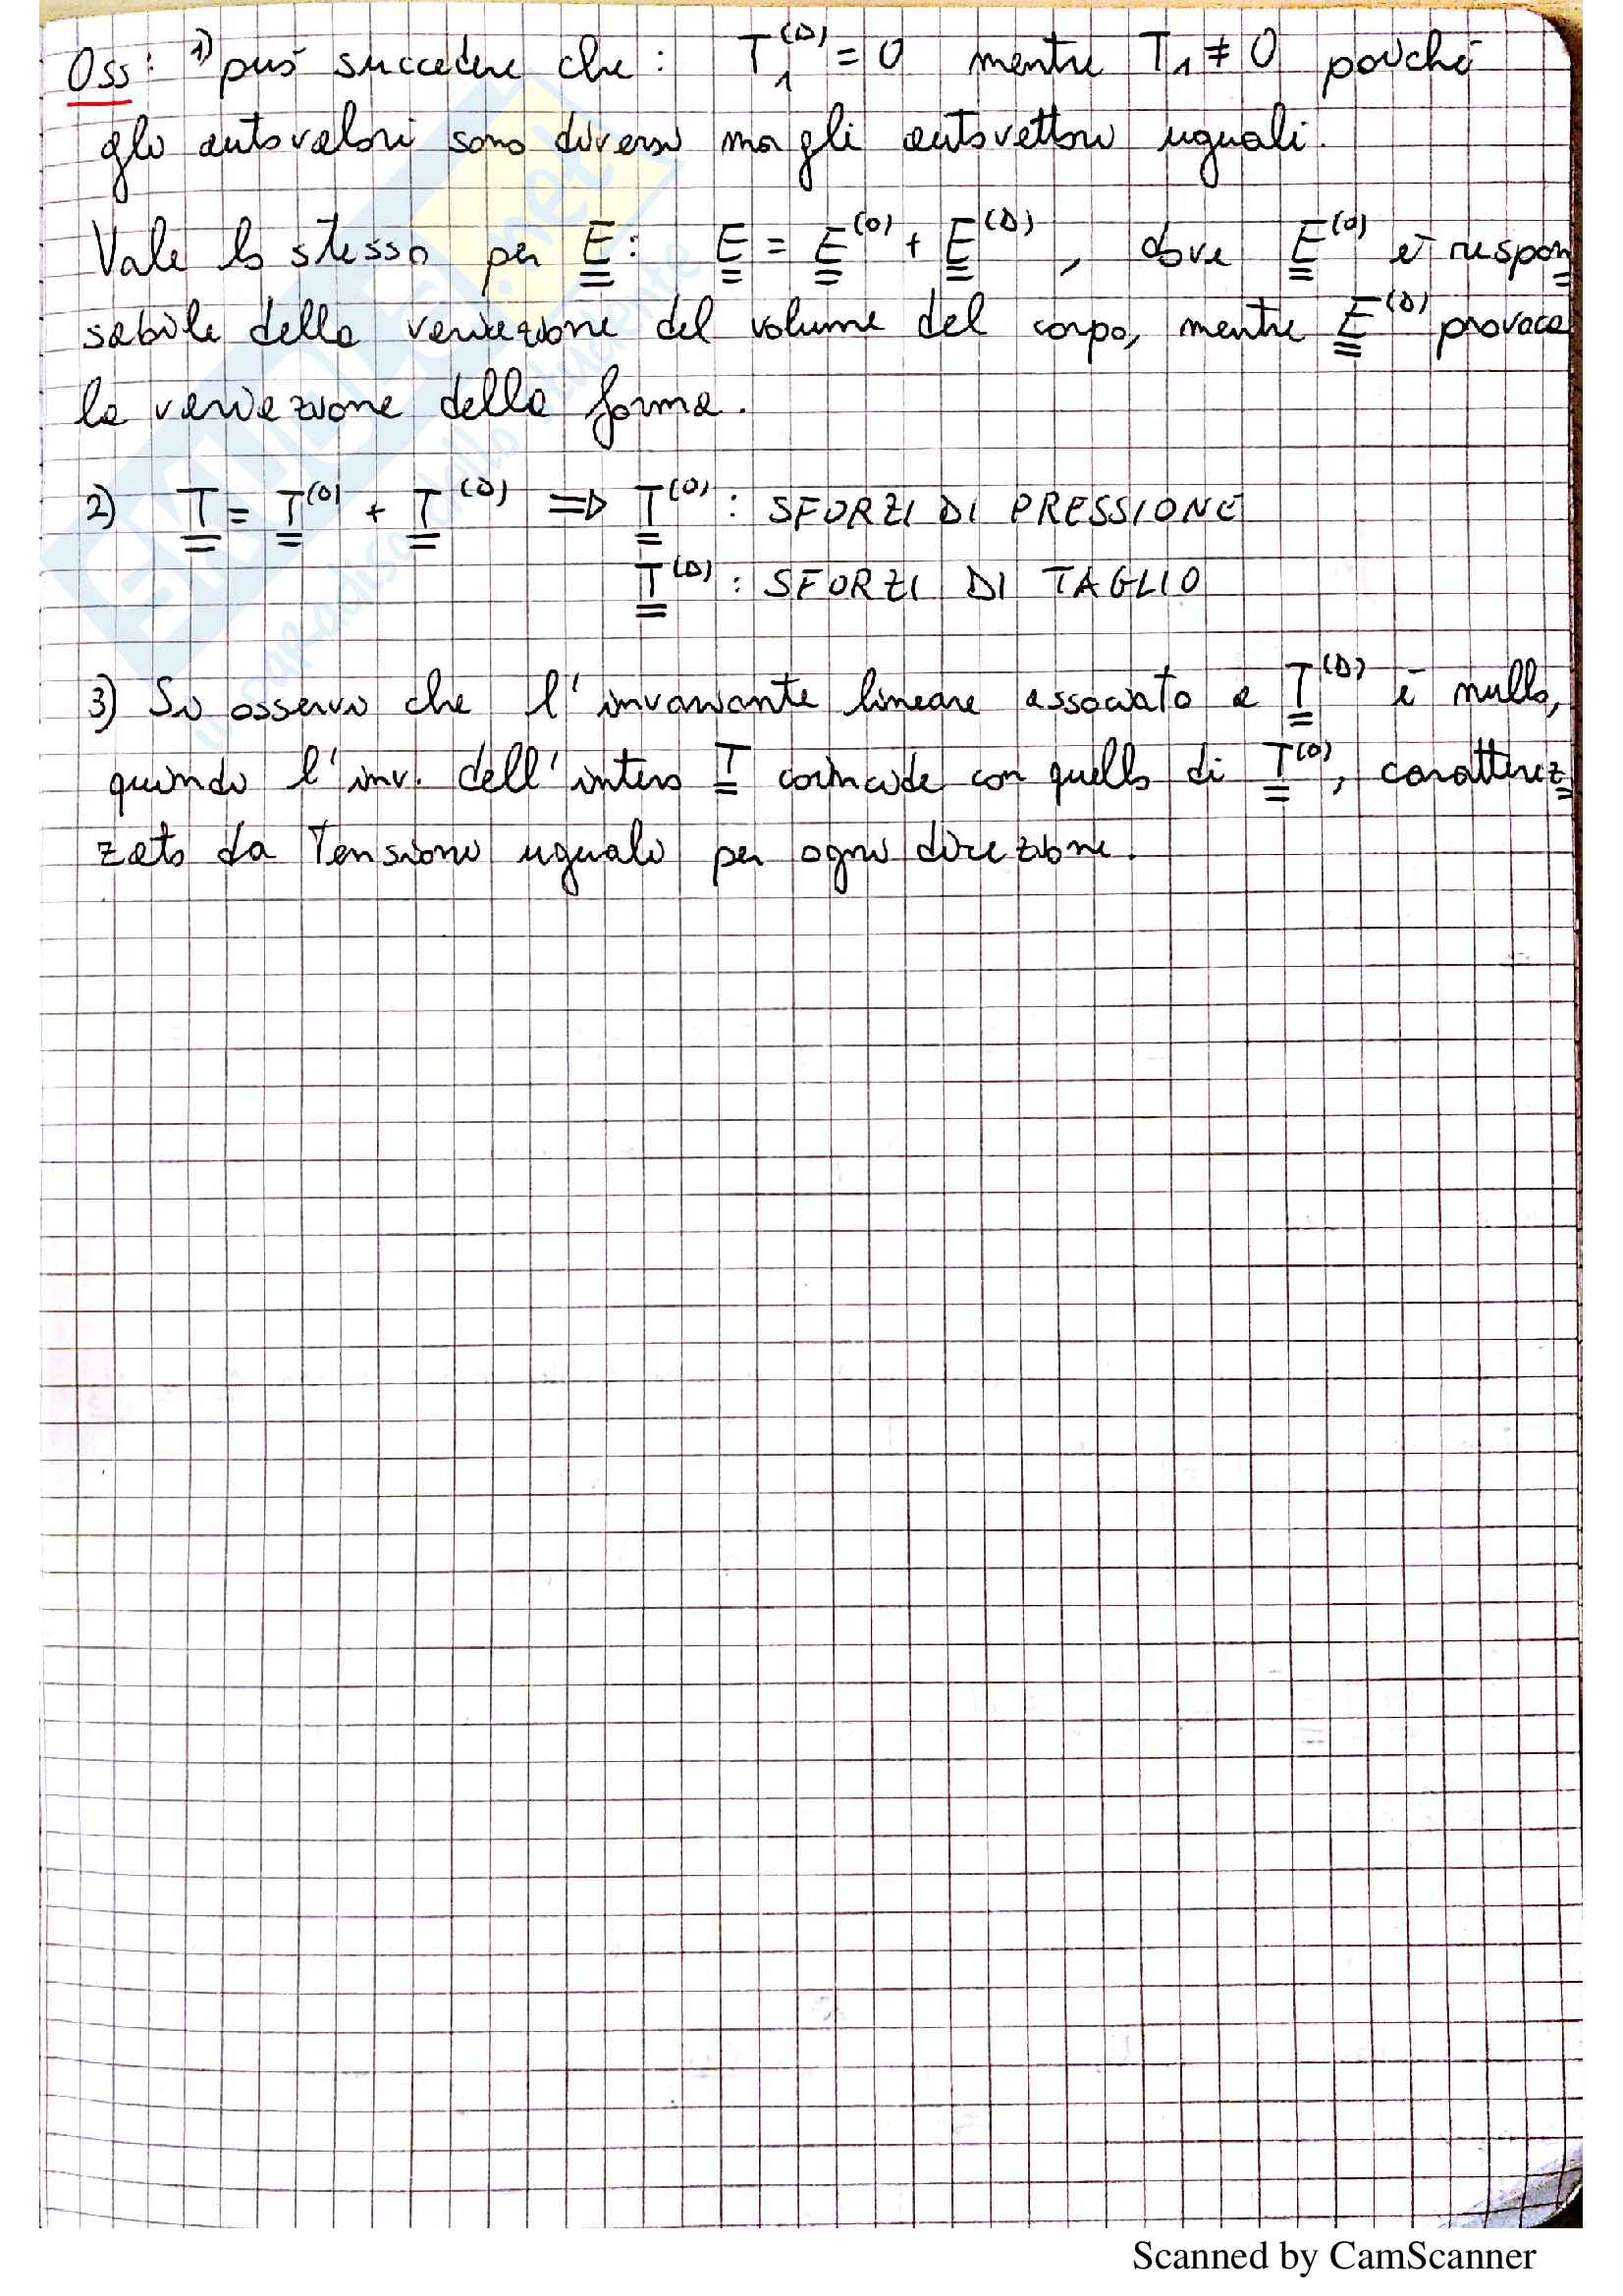 Oss: 1) può succedere che: T₁⁽ᴰ⁾ = 0 mentre T₁ ≠ 0 poiché
gli autovalori sono diversi ma gli autovettori uguali.
Vale lo stesso per E: E = E⁽⁰⁾ + E⁽ᴰ⁾, dove E⁽⁰⁾ è respon
sabile della variazione del volume del corpo, mentre E⁽ᴰ⁾ provoca
la variazione della forma.
2) T = T⁽⁰⁾ + T⁽ᴰ⁾ ⇒ T⁽⁰⁾: SFORZI DI PRESSIONE
T⁽ᴰ⁾: SFORZI DI TAGLIO
3) Si osservi che l'invariante lineare associato a T⁽ᴰ⁾ è nullo,
quindi l'inv. dell'intero T coincide con quello di T⁽⁰⁾, caratteriz
zato da Tensioni uguali per ogni direzione.
SKUOLA.net
il paradiso dello studente
Scanned by CamScanner